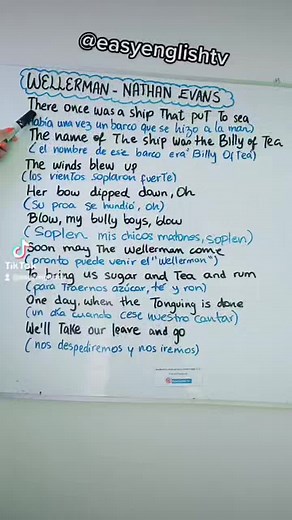 @easyenglishtv
WELLERMAN - NATHAN EVANS
There once was a ship That put To sea
(Había una vez un barco que se hizo a la mar)
The name of The ship was the Billy of Tea
(el nombre de ese barco era "Billy Of Tea)
The winds blew up
(los vientos soplaron fuerte)
Her bow dipped dawn, Oh
(Su proa se hundió, oh)
Blow, my bully boys, blow
(Soplen mis chicos matones, soplen)
Soon may The wellerman come
(pronto puede venir el "wellerman")
To bring us sugar and Tea and rum
(para Traernos azúcar, té y ron)
One day, when the Tonguing is done
(un día cuando cese nuestro cantar)
We'll Take our leave and go
(nos despediremos y nos iremos)
TikTok